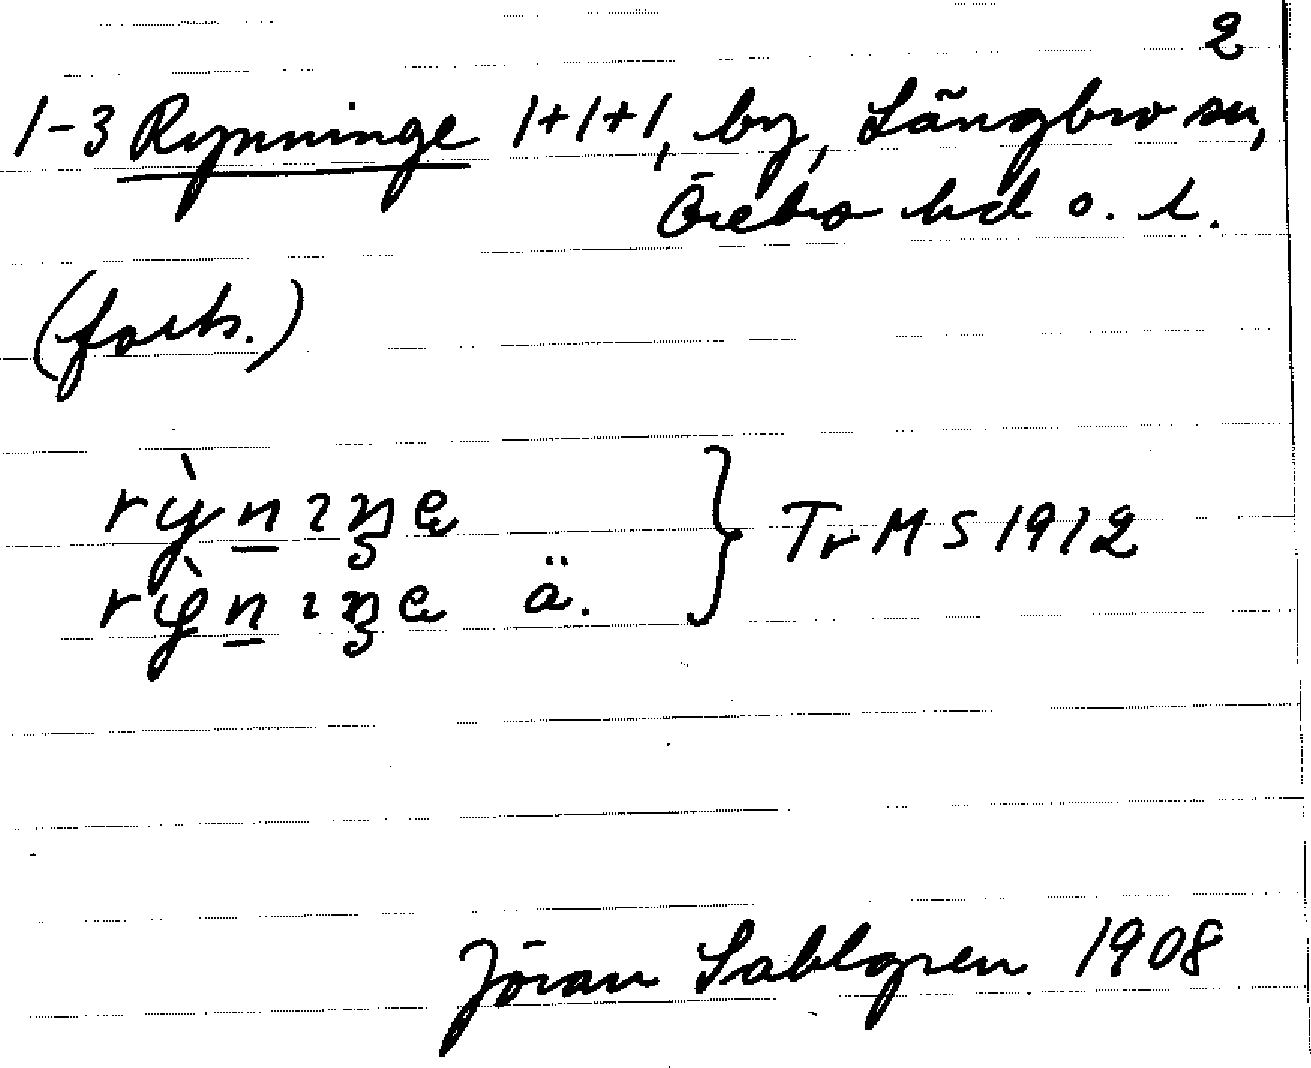 2
1-3 Rynninge 1+1+1, by, Längbro sn,
Örebro hd o. l.
(forts.)
TrMS 1912
ä.
Jöran Sahlgren 1908